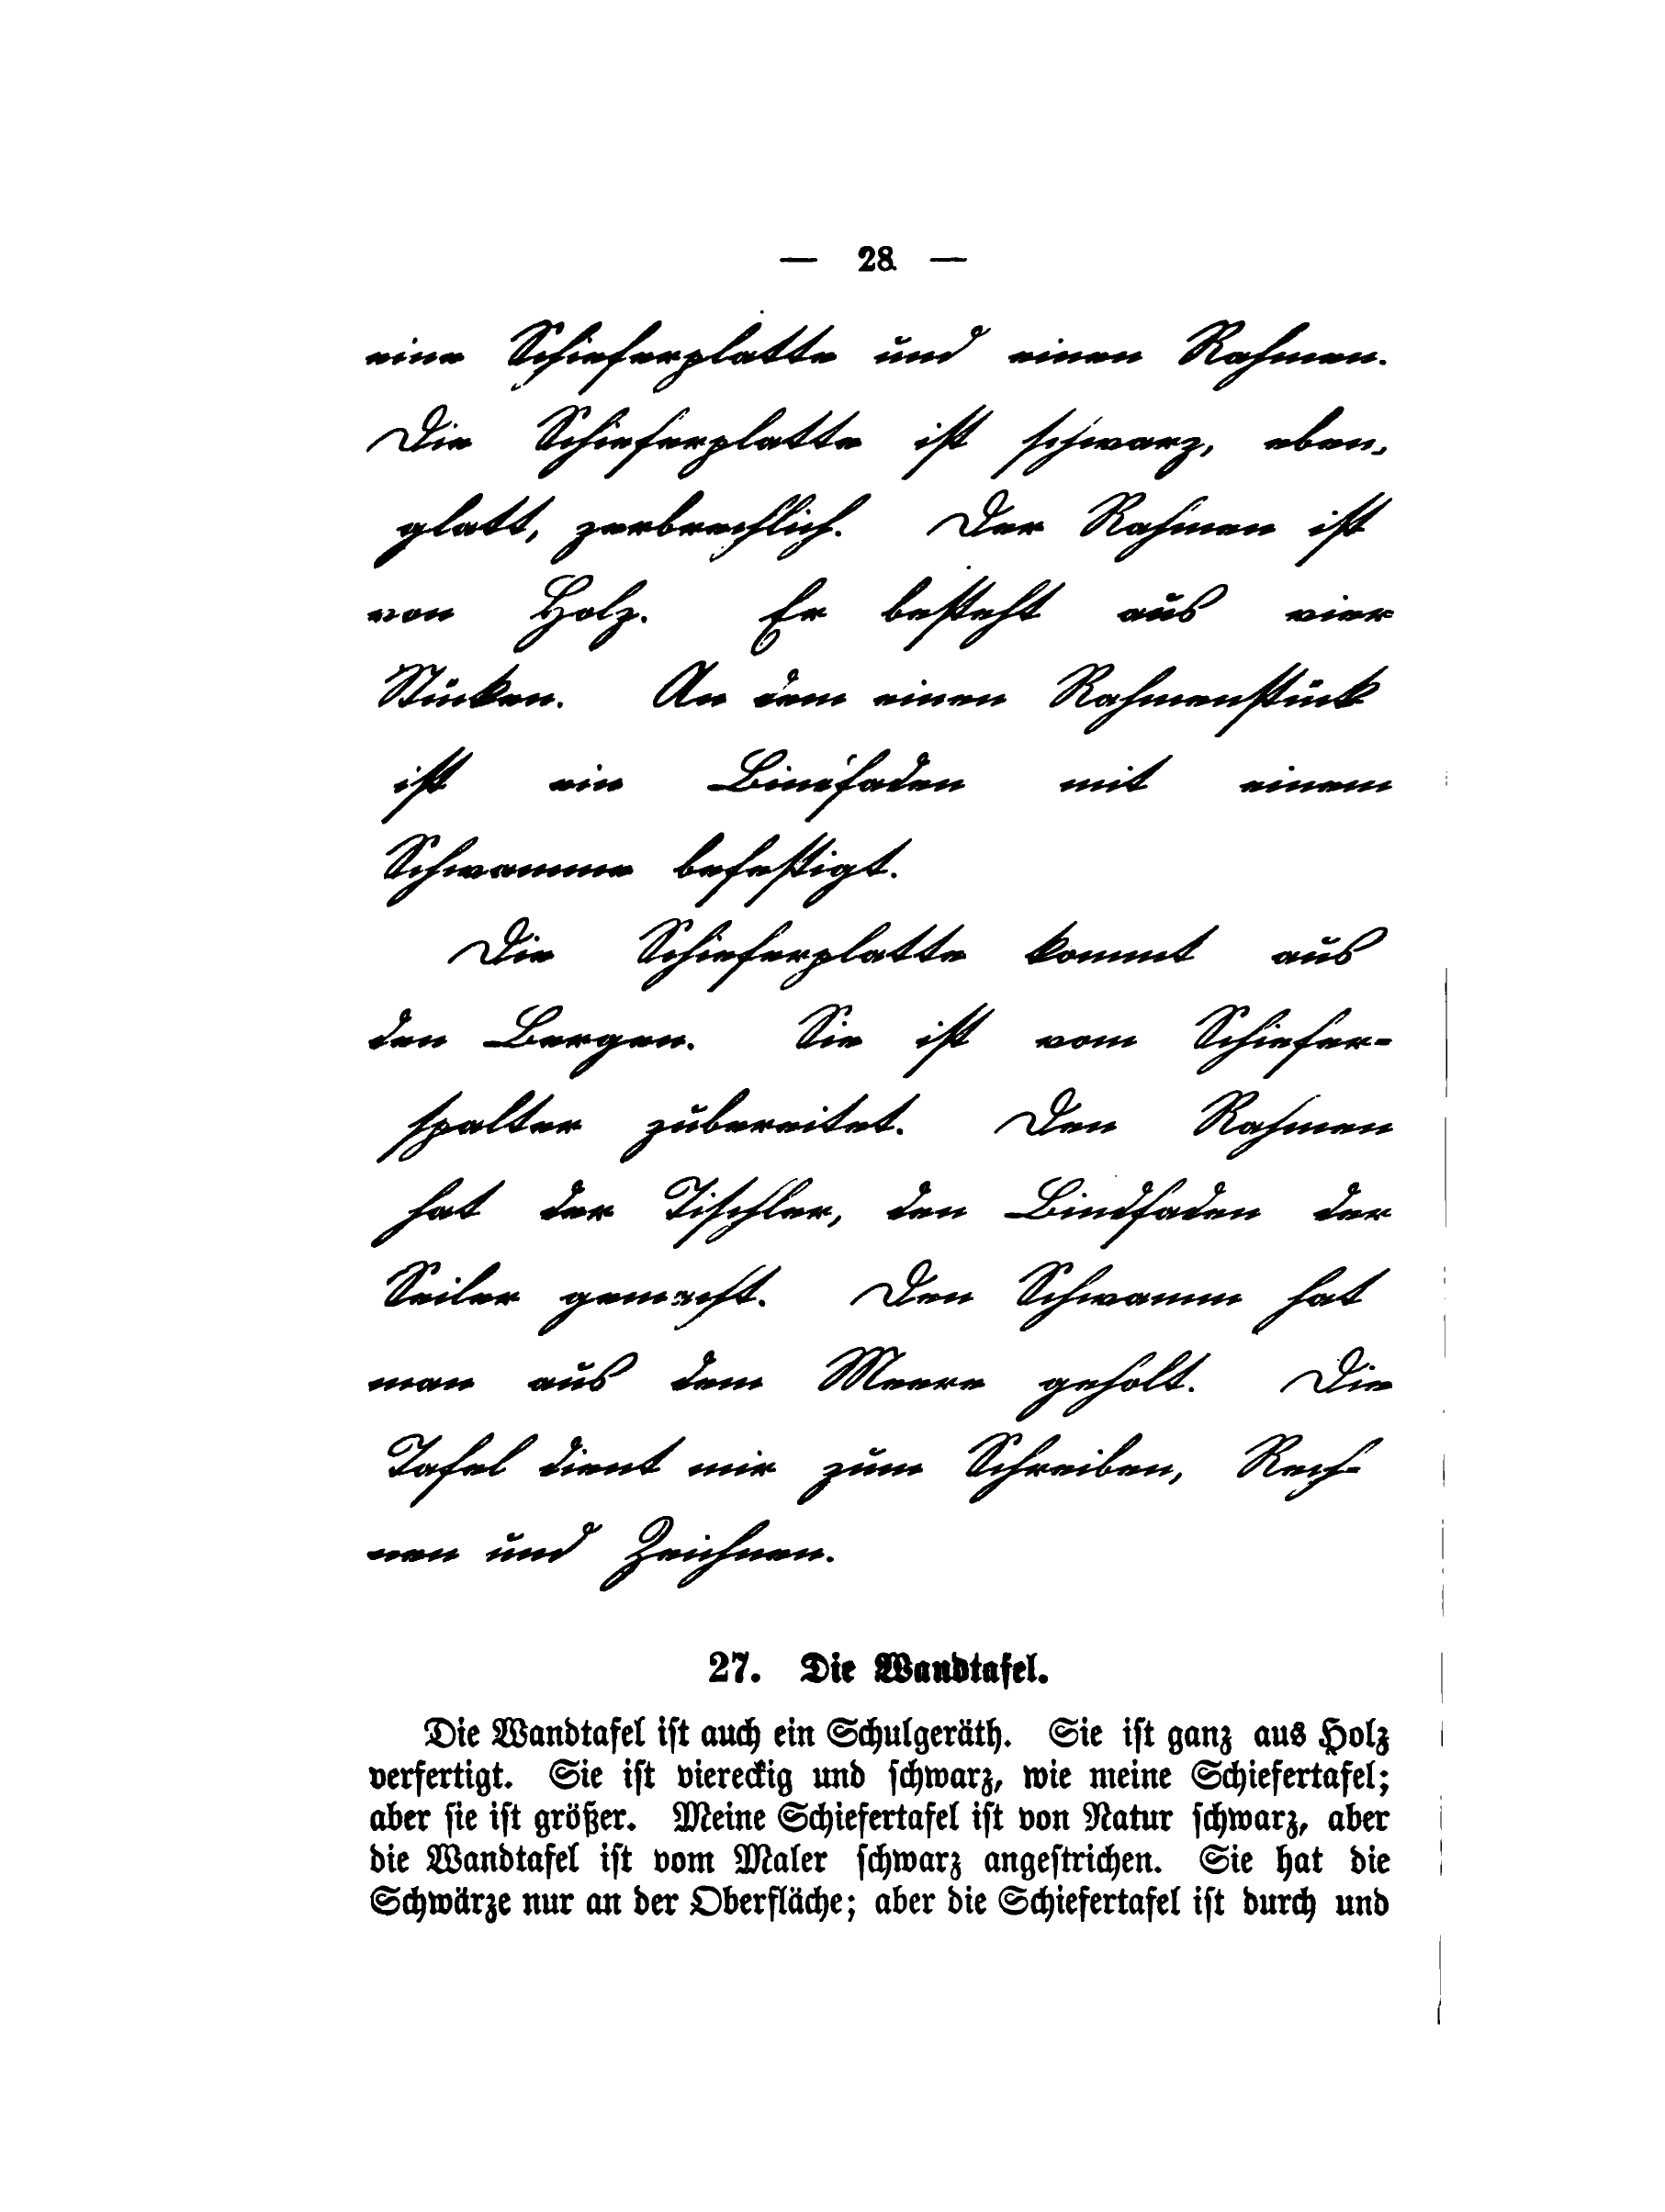 — 28 —
eine Schieferplatte und einen Rahmen.
Die Schieferplatte ist schwarz, eben,
glatt, zerbrechlich. Der Rahmen ist
von Holz. Er besteht aus vier
Stücken. An dem einen Rahmenstück
ist ein Bindfaden mit einem
Schwamme befestigt.
Die Schieferplatte kommt aus
den Bergen. Sie ist vom Schiefer-
spalter zubereitet. Den Rahmen
hat der Tischler, den Bindfaden der
Seiler gemacht. Den Schwamm hat
man aus dem Meere geholt. Die
Tafel dient mir zum Schreiben, Rech-
nen und Zeichnen.
27. Die Wandtafel.
Die Wandtafel iſt auch ein Schulgeräth. Sie iſt ganz aus Holz
verfertigt. Sie iſt viereckig und ſchwarz, wie meine Schiefertafel;
aber ſie iſt größer. Meine Schiefertafel iſt von Natur ſchwarz, aber
die Wandtafel iſt vom Maler ſchwarz angeſtrichen. Sie hat die
Schwärze nur an der Oberfläche; aber die Schiefertafel iſt durch und